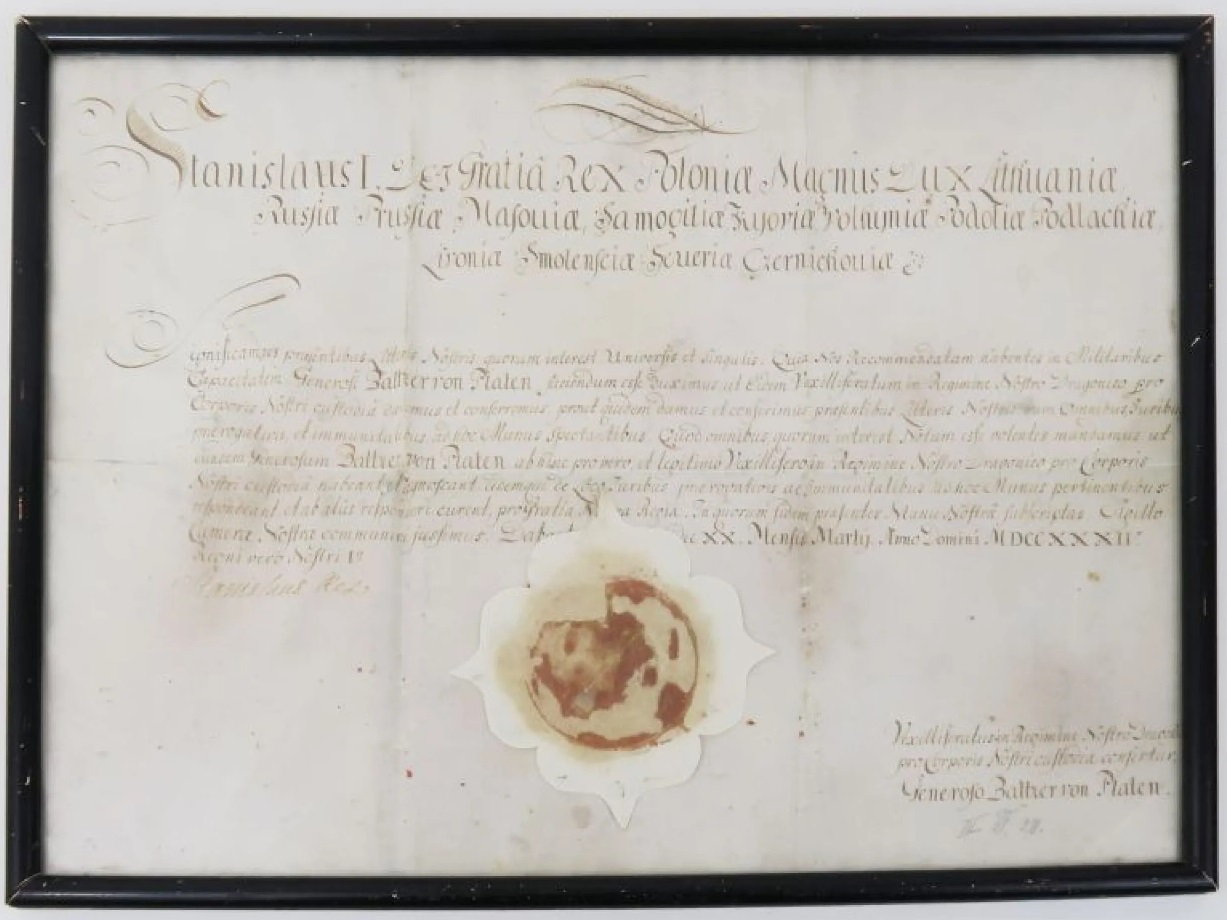 Stanislaus I, Dei Gratiâ Rex Poloniæ Magnus Dux Lithuaniæ
Russiæ Prussiæ, Masoviæ, Samogitiæ Kyoviæ Volhyniæ Podoliæ Podlachiæ
Livoniæ Smolensciæ Severiæ Czernichoviæ &c
Significamus præsentibus Literis Nostris quorum interest Universis et singulis. Quia Nos Recommendatam habentes in Militaribus
Capacitatem Generosi Baltzer von Platen, faciendum esse Duximus ut Eidem Vexilliferatum in Regimine Nostro Dragonico pro
Corporis Nostri custodiâ daremus et conferremus, prout quidem damus et conferimus præsentibus Literis Nostris cum Omnibus Juribus
prærogativa, et immunitatibus, ad hoc Munus spectantibus. Quod omnibus quorum interest Notum esse volentes mandamus ut
eundem Generosum Baltzer von Platen ab hinc pro vero, et legitimo Vexillifero in Regimine Nostro Dragonico pro Corporis
Nostri custodiâ habeant et agnoscant eiemque de Juribus prærogativis ac immunitatibus ad hoc Munus pertinentibus
respondeant et ab aliis responderi curent, pro Gratia Nostra Regia. In quorum fidem præsentes Manu Nostrâ subscriptas Sigillo
Cameræ Nostræ communiri jussimus. XX. Mensis Martij. Anno Domini MDCCXXXII
Regni vero Nostri
Stanislaus Rex
Vexilliferatus in Regimine Nostro
pro Corporis Nostri custodiâ confertur
Generoso Baltzer von Platen.